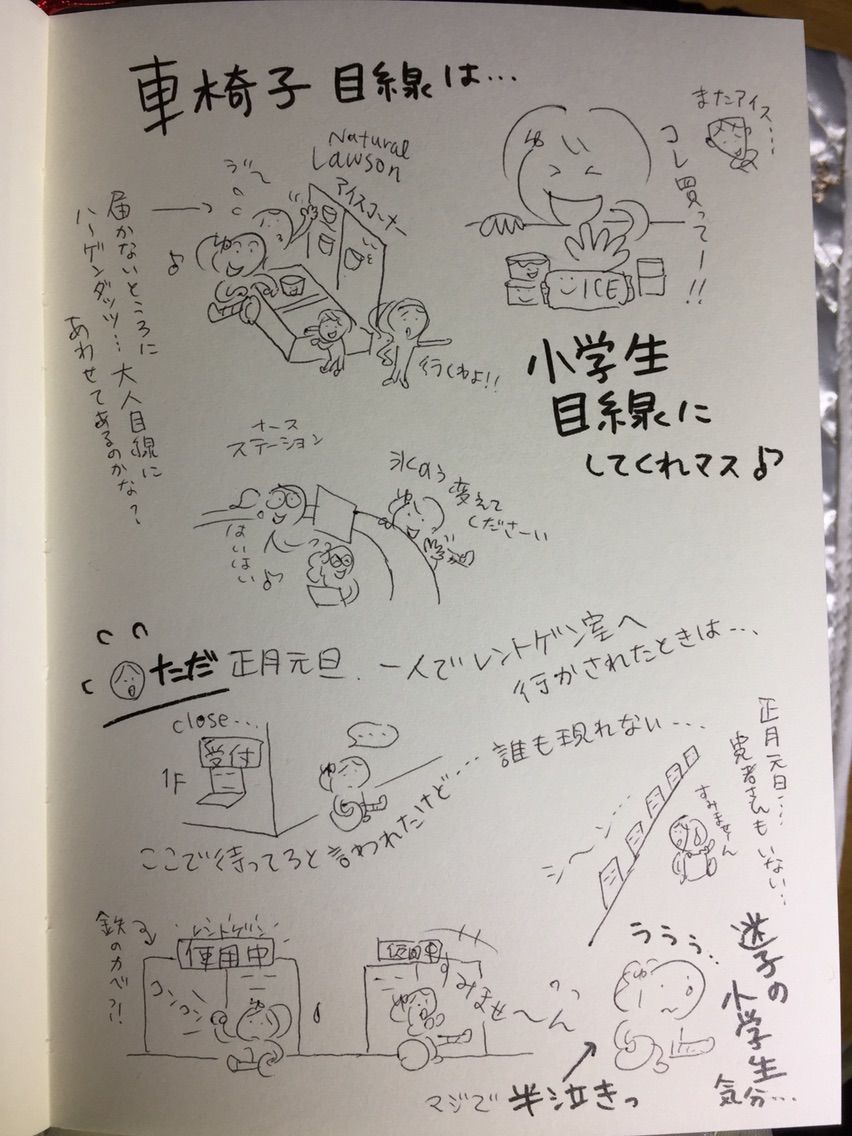 車椅子目線は…
Natural
Lawson
アイスコーナー
届かないところに
ハーゲンダッツ…大人目線に
あわせてあるのかな?
行くわよ!!
またアイス…
コレ買ってー!!
ICE
小学生
目線に
してくれマス♪
ナース
ステーション
はいはい♪
氷のう
変えて
くださーい
ただ 正月元旦、一人でレントゲン室へ
行かされたときは…、
close…
受付
1F
…
ここで待ってろと言われたけど…誰も現れない…
シ〜ン…
すみません
正月元旦…
患者さんもいない…
鉄のカベっ!!
レントゲン
使用中
コンコン
使用中
すみませ〜ん
ううう…
迷子の
小学生
気分…
マジで半泣きっ